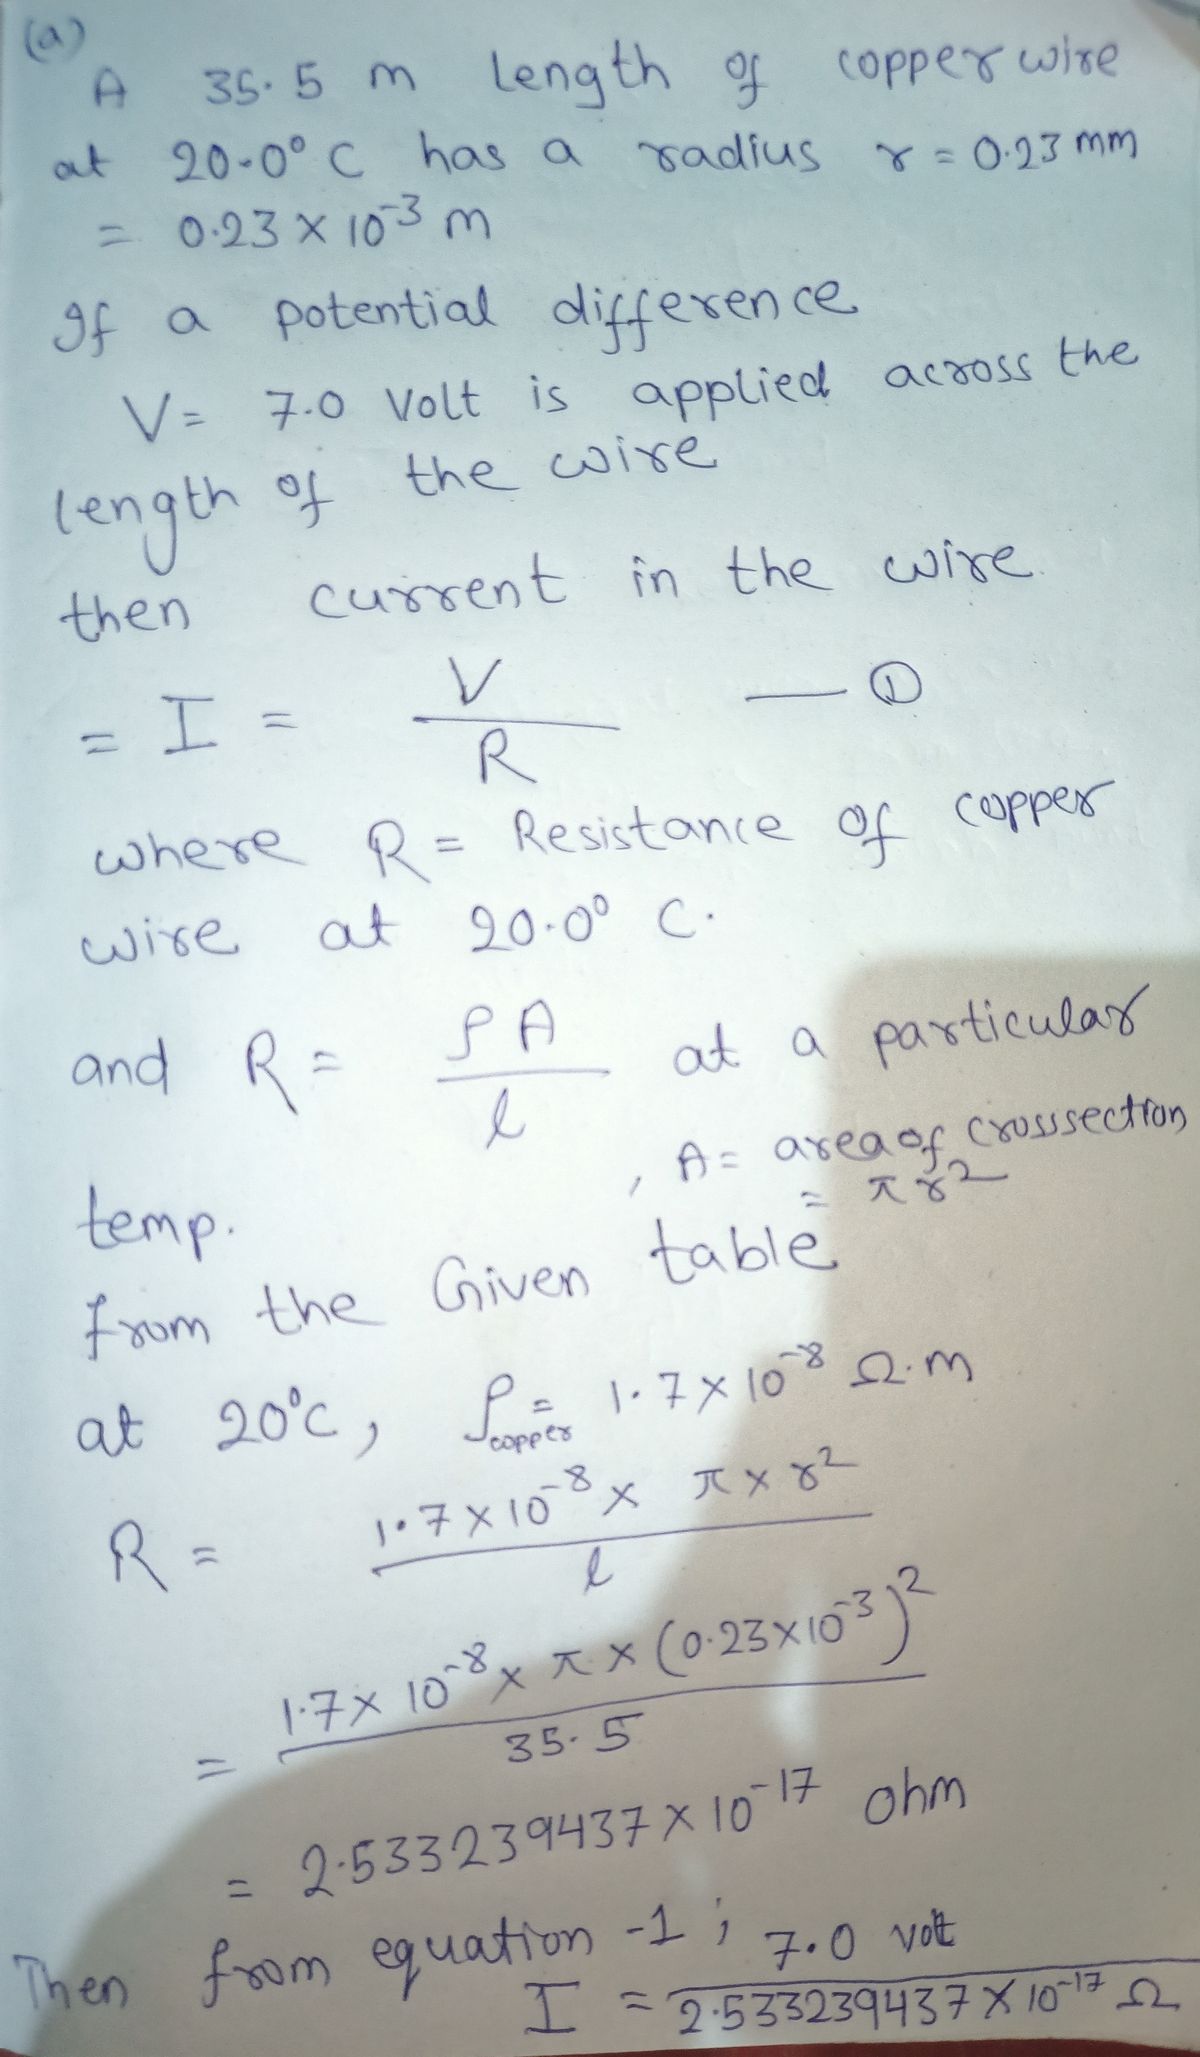 (a)
A 35.5 m length of copper wire
at 20.0° C has a radius r = 0.23 mm
= 0.23 × 10⁻³ m
If a potential difference
V = 7.0 Volt is applied across the
length of the wire
then current in the wire.
= I = V / R — ①
where R = Resistance of copper
wire at 20.0° C.
and R = ρA / l at a particular
temp. , A = area of crosssection
= πr²
from the Given table
at 20°C, ρcopper = 1.7 × 10⁻⁸ Ω.m
R = 1.7 × 10⁻⁸ × π × r² / l
= 1.7 × 10⁻⁸ × π × (0.23 × 10⁻³)² / 35.5
= 2.533239437 × 10⁻¹⁷ ohm
Then from equation -1 ;
I = 7.0 volt / 2.533239437 × 10⁻¹⁷ Ω